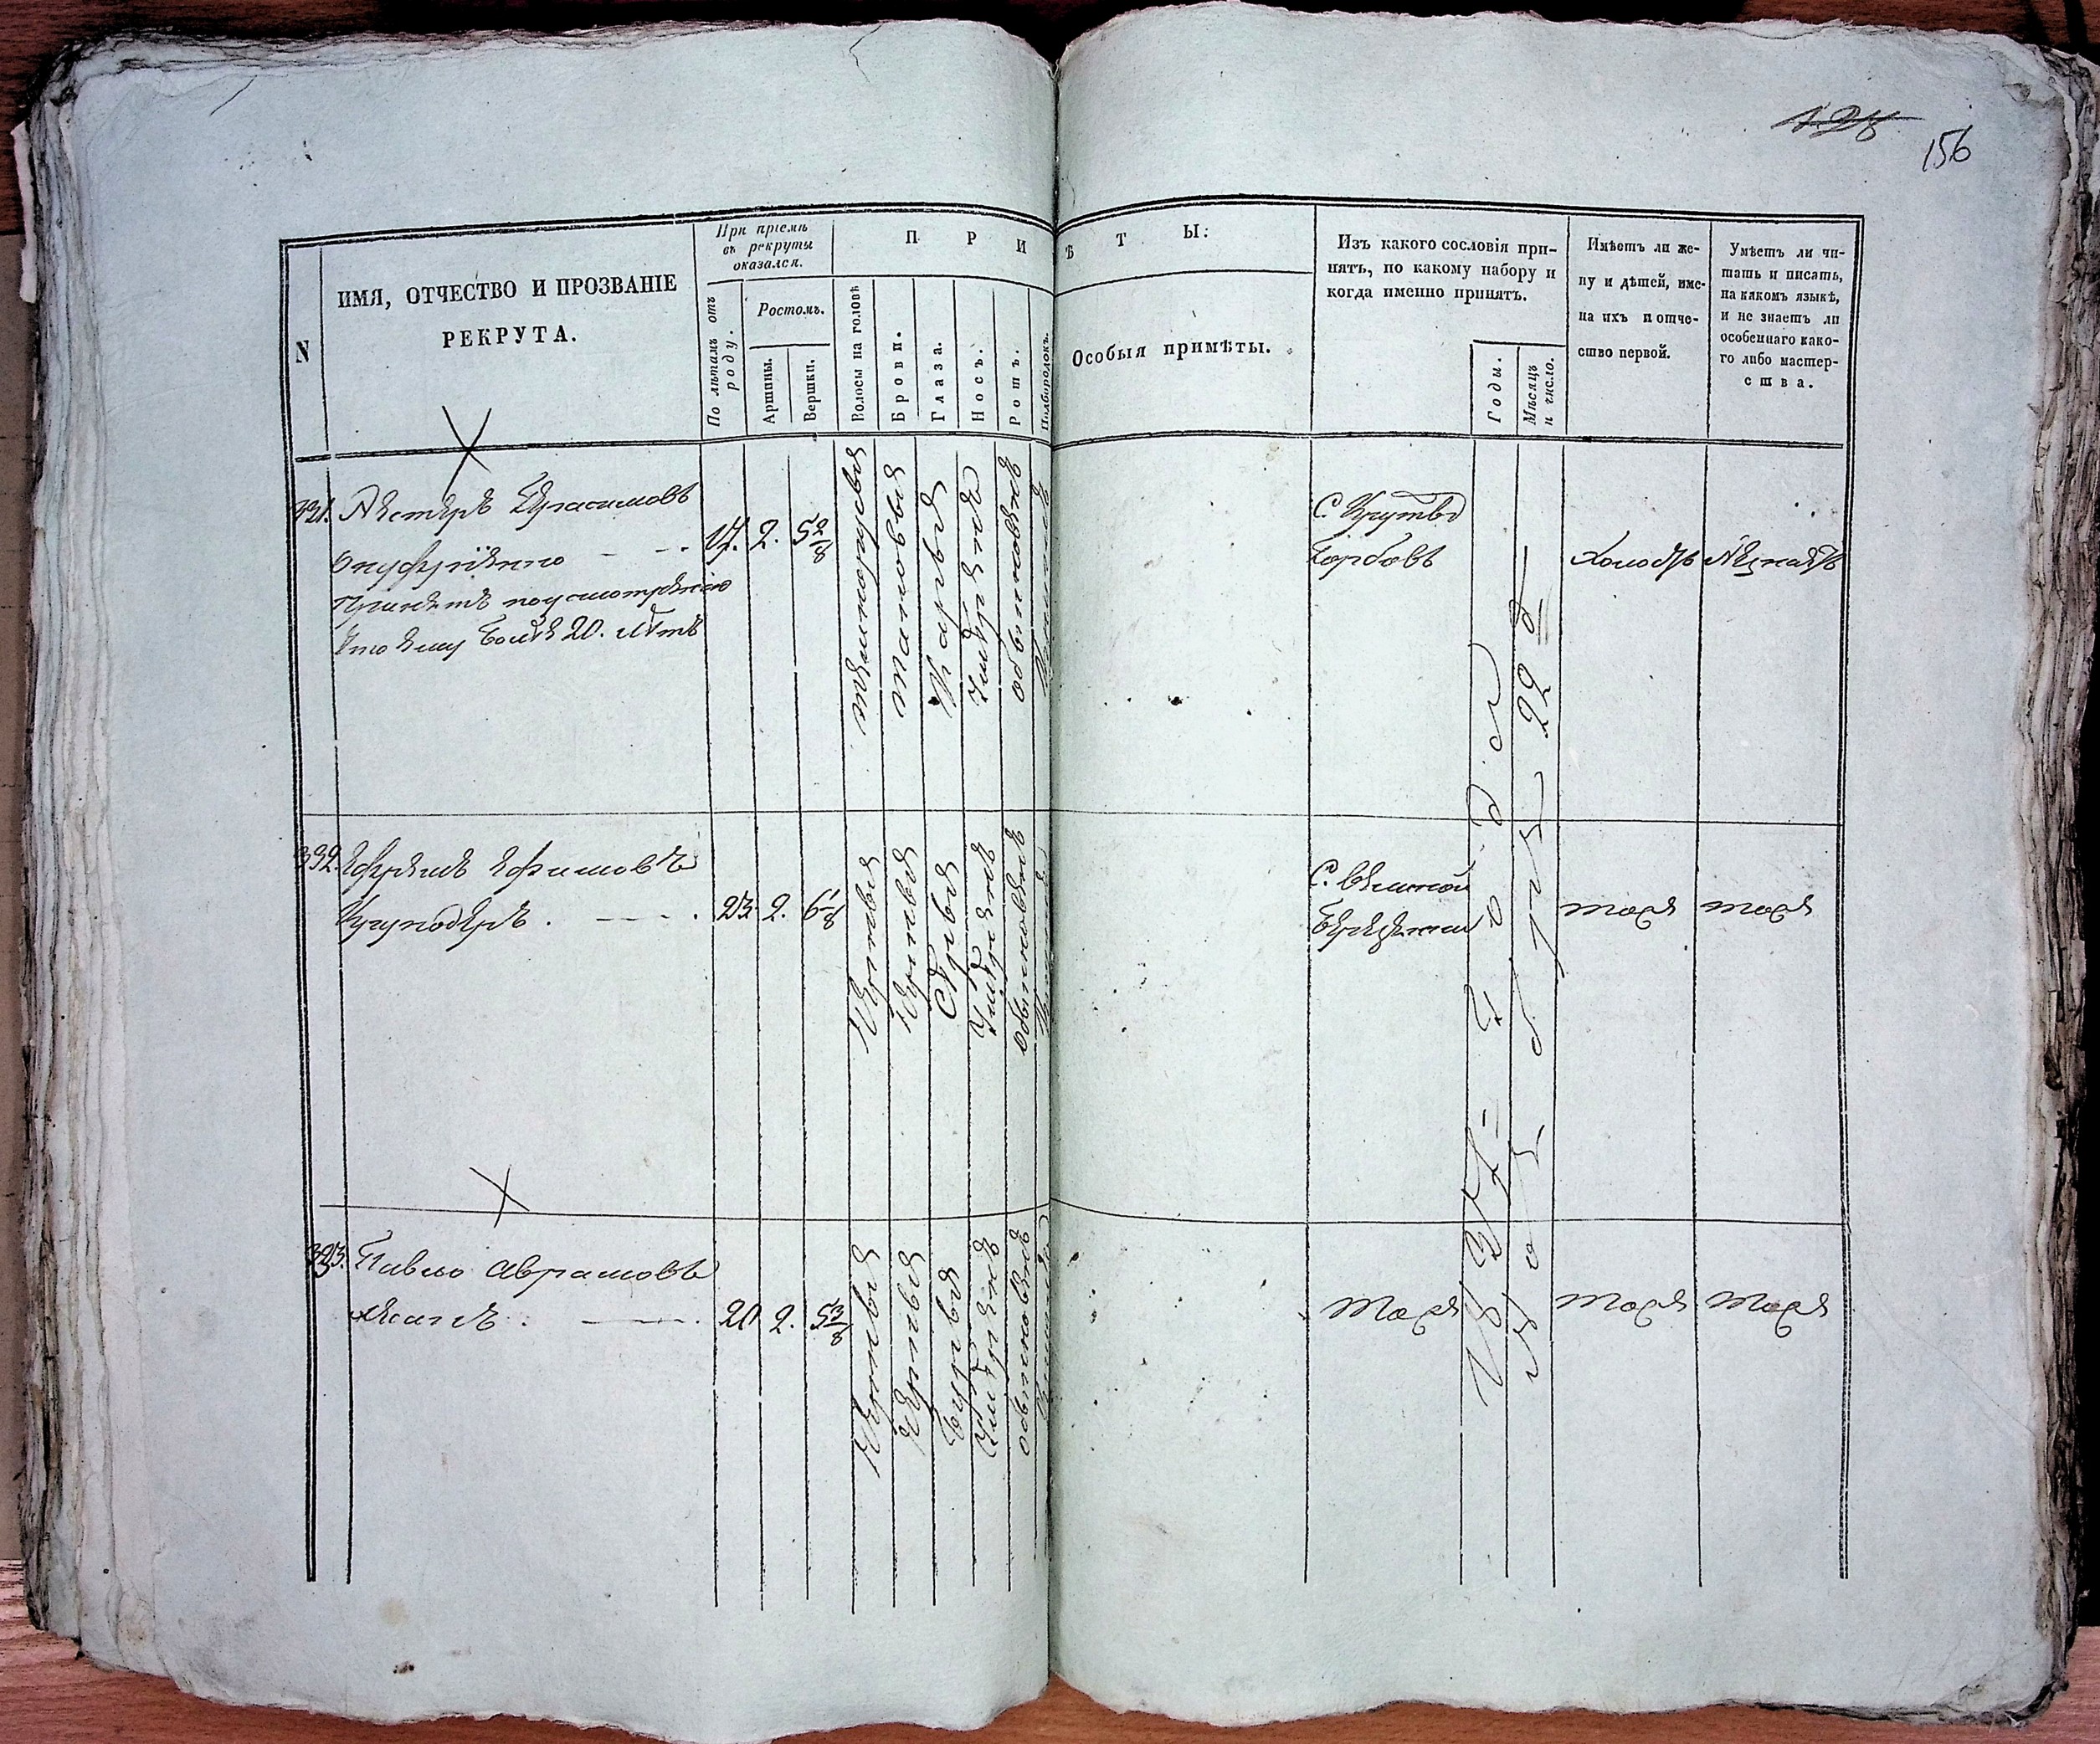 128
156
N
ИМЯ, ОТЧЕСТВО И ПРОЗВАНІЕ
РЕКРУТА.
При пріемѣ
въ рекруты
оказался.
По лѣтамъ отъ
роду.
Ростомъ.
Аршины.
Вершки.
ПРИМѢТЫ:
Волосы на головѣ
Брови.
Глаза.
Носъ.
Ротъ.
Подбородокъ.
Особыя примѣты.
Изъ какого сословія при-
нятъ, по какому набору и
когда именно принятъ.
Годы.
Мѣсяцъ
и число.
Имѣетъ ли же-
ну и дѣтей, име-
на ихъ и отче-
ство первой.
Умѣетъ ли чи-
тать и писать,
на какомъ языкѣ,
и не знаетъ ли
особеннаго како-
го либо мастер-
ства.
Нестеръ Герасимовъ
17. 2. 5 2/8
Принятъ по усмотрѣнію
что ему болѣе 20. лѣтъ
темнорусыя
таковыя
Карыя
умѣренной
обыкновенной
Горбовъ
холостъ
Незнаетъ
392. Ефремъ Ефимовъ
23. 2. 6 1/8
Черныя
Черныя
Сѣрыя
Умѣренной
обыкновенной
С. великой
Березянки
тоже
тоже
Павло Аврамовъ
20 2. 5 3/8
Черныя
Черныя
Умѣренной
обыкновенной
Тоже
Тоже
Тоже
года
22